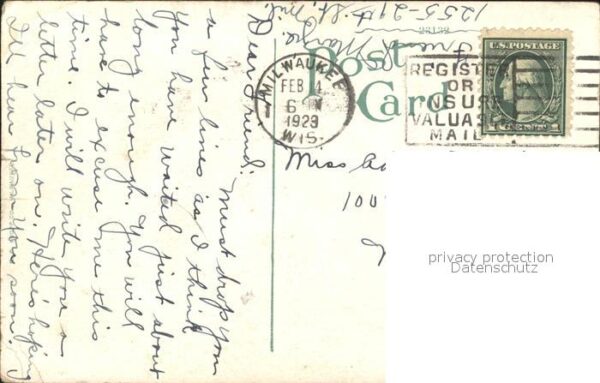 Dear Friend: Must drop you
a few lines as I think
you have waited just about
long enough. You will
have to excuse me this
time. I will write you a
letter later on. Here's hoping
I'll hear from you soon.
Friend
Marge
1255-29th St. Mil.
23132
Post
Card
MILWAUKEE
FEB 4
6 M
1923
WIS.
REGISTER
OR
INSURE
VALUABLE
MAIL
U.S. POSTAGE
Miss
100
privacy protection
Datenschutz